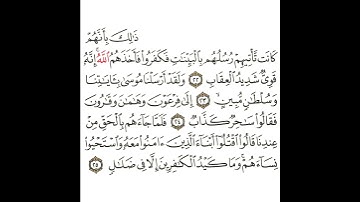 ذَٰلِكَ بِأَنَّهُمْ
كَانَت تَّأْتِيهِمْ رُسُلُهُم بِالْبَيِّنَاتِ فَكَفَرُوا فَأَخَذَهُمُ اللَّهُ ۚ إِنَّهُ
قَوِيٌّ شَدِيدُ الْعِقَابِ ٢٢ وَلَقَدْ أَرْسَلْنَا مُوسَىٰ بِآيَاتِنَا
وَسُلْطَانٍ مُّبِينٍ ٢٣ إِلَىٰ فِرْعَوْنَ وَهَامَانَ وَقَارُونَ
فَقَالُوا سَاحِرٌ كَذَّابٌ ٢٤ فَلَمَّا جَاءَهُم بِالْحَقِّ مِنْ
عِندِنَا قَالُوا اقْتُلُوا أَبْنَاءَ الَّذِينَ آمَنُوا مَعَهُ وَاسْتَحْيُوا
نِسَاءَهُمْ ۚ وَمَا كَيْدُ الْكَافِرِينَ إِلَّا فِي ضَلَالٍ ٢٥